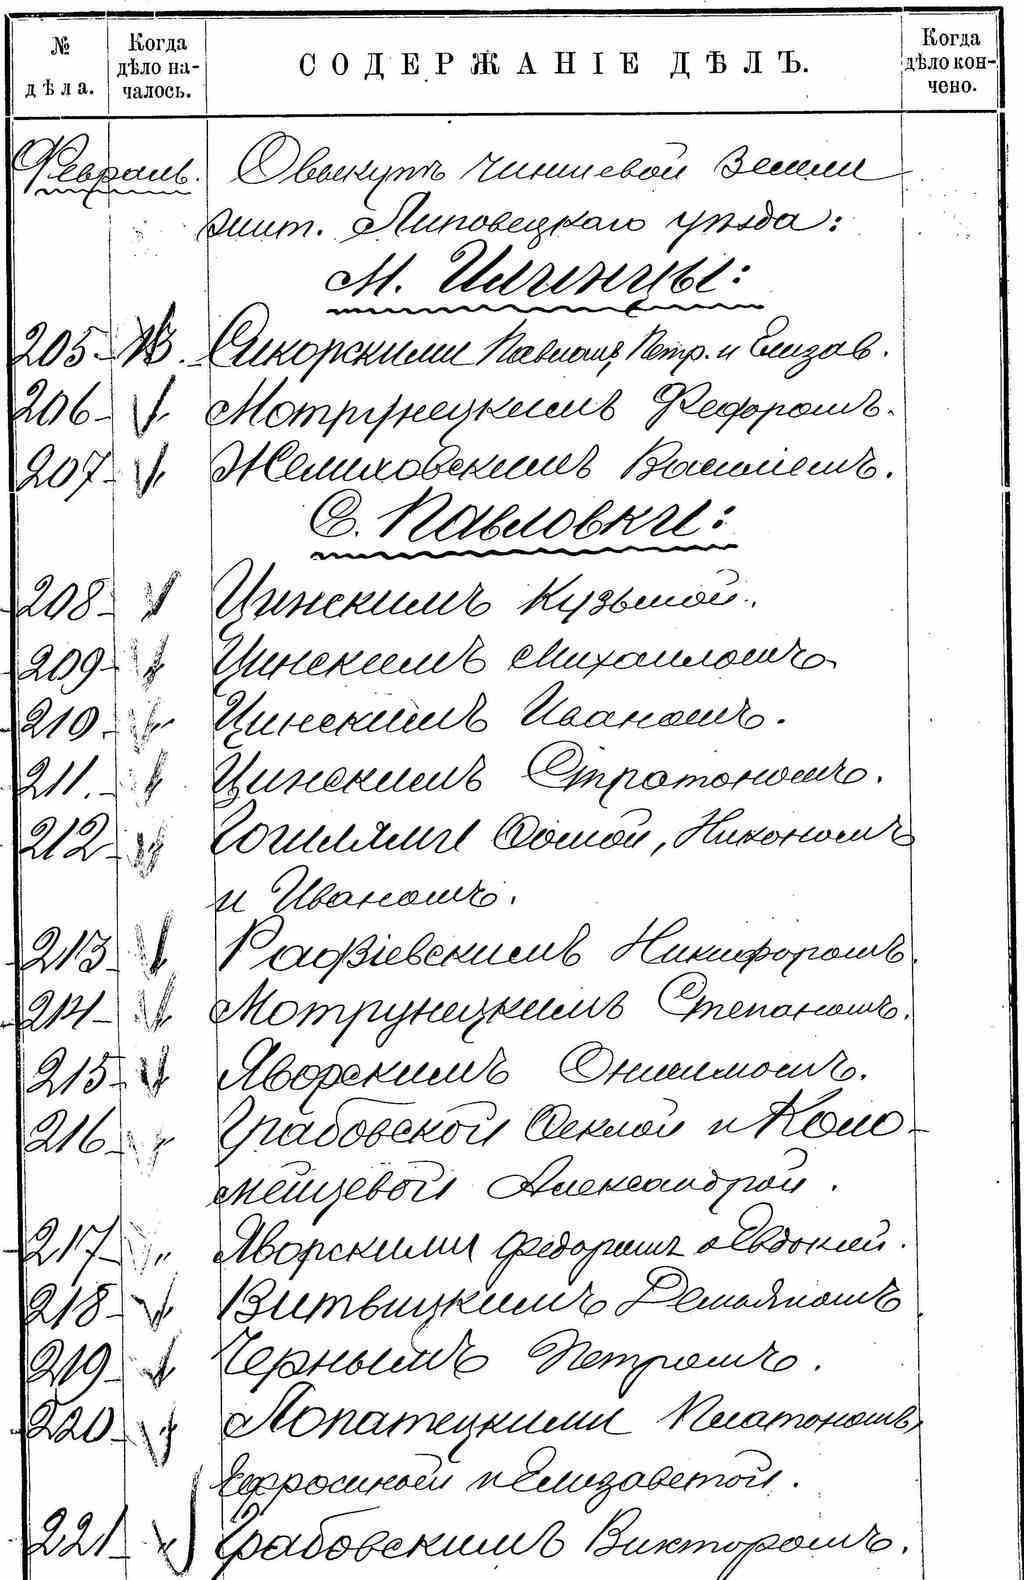 № дѣла.
Когда дѣло началось.
СОДЕРЖАНІЕ ДѢЛЪ.
Когда дѣло кончено.
Февраль. О выкупѣ чиншевой земли
жит. Липовецкаго уѣзда:
М. Илинцы:
205 13. Сикорскими Павломъ, Петр. и Елизав.
206 Мотрунецкимъ Федоромъ.
207 Желиховскимъ Василіемъ.
С. Павловки:
208 Цинскимъ Кузьмой.
209 Цинскимъ Михаиломъ
210 Цинскимъ Иваномъ.
211. Цинскимъ Стратономъ.
212 Ѳомой, Никономъ
и Иваномъ.
213 Рафіевскимъ Никифоромъ.
214 Мотрунецкимъ Степаномъ.
215 Яворскимъ Онисимомъ.
216 Грабовской Ѳеклой и Коло-
мейцевой Александрой.
217 Яворскими Федоромъ и Евдокіей.
218 Витвицкимъ Демьяномъ
219 Чернымъ Петромъ.
220 Лопатецкими Платономъ,
Ефросиньей и Елизаветой.
221 Грабовскимъ Викторомъ.